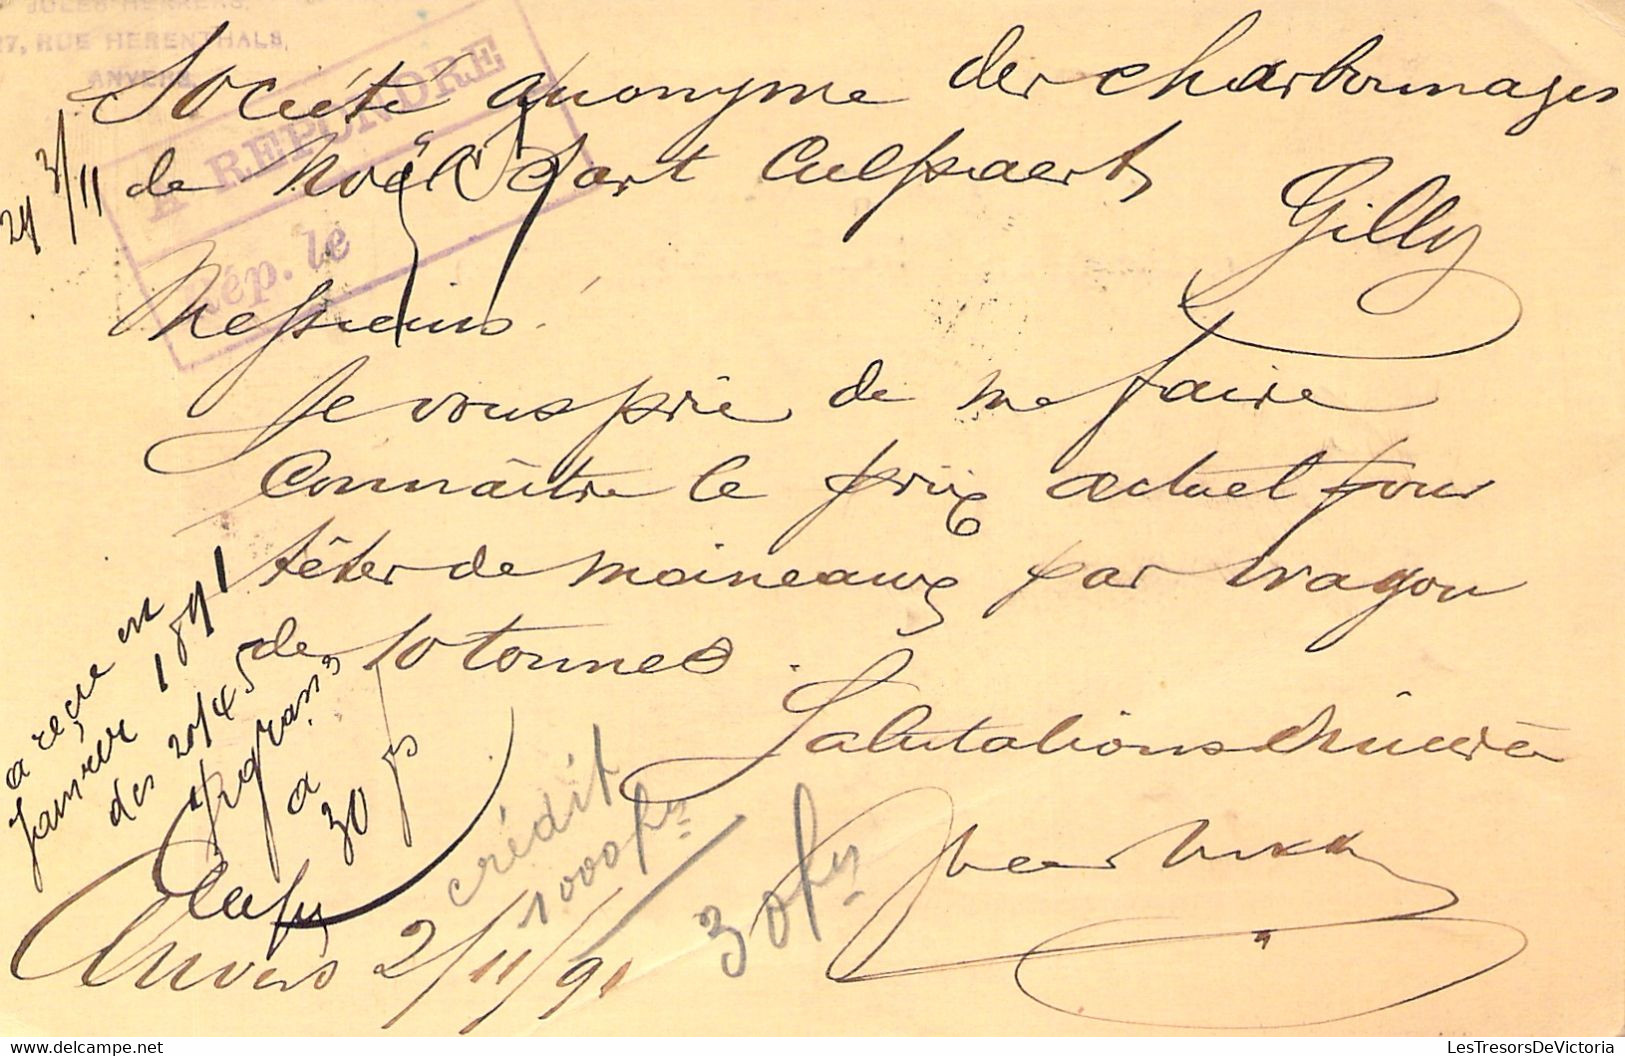 JULES HERKENS,
27, RUE HERENTHALS,
ANVERS
A REPONDRE
Rép. le
Société anonyme des charbonnages
de Noël Sart Culpart
Gilly
Messieurs
Je vous prie de me faire
connaître le prix actuel pour
têtes de moineaux par wagon
de 10 tonnes.
Salutations sincères
Anvers 2/11/91
3/11
a reçu en
janvier 1891
des 20/45
a
30 fs
crédit
1000 frs
30 frs
LesTresorsDeVictoria.com